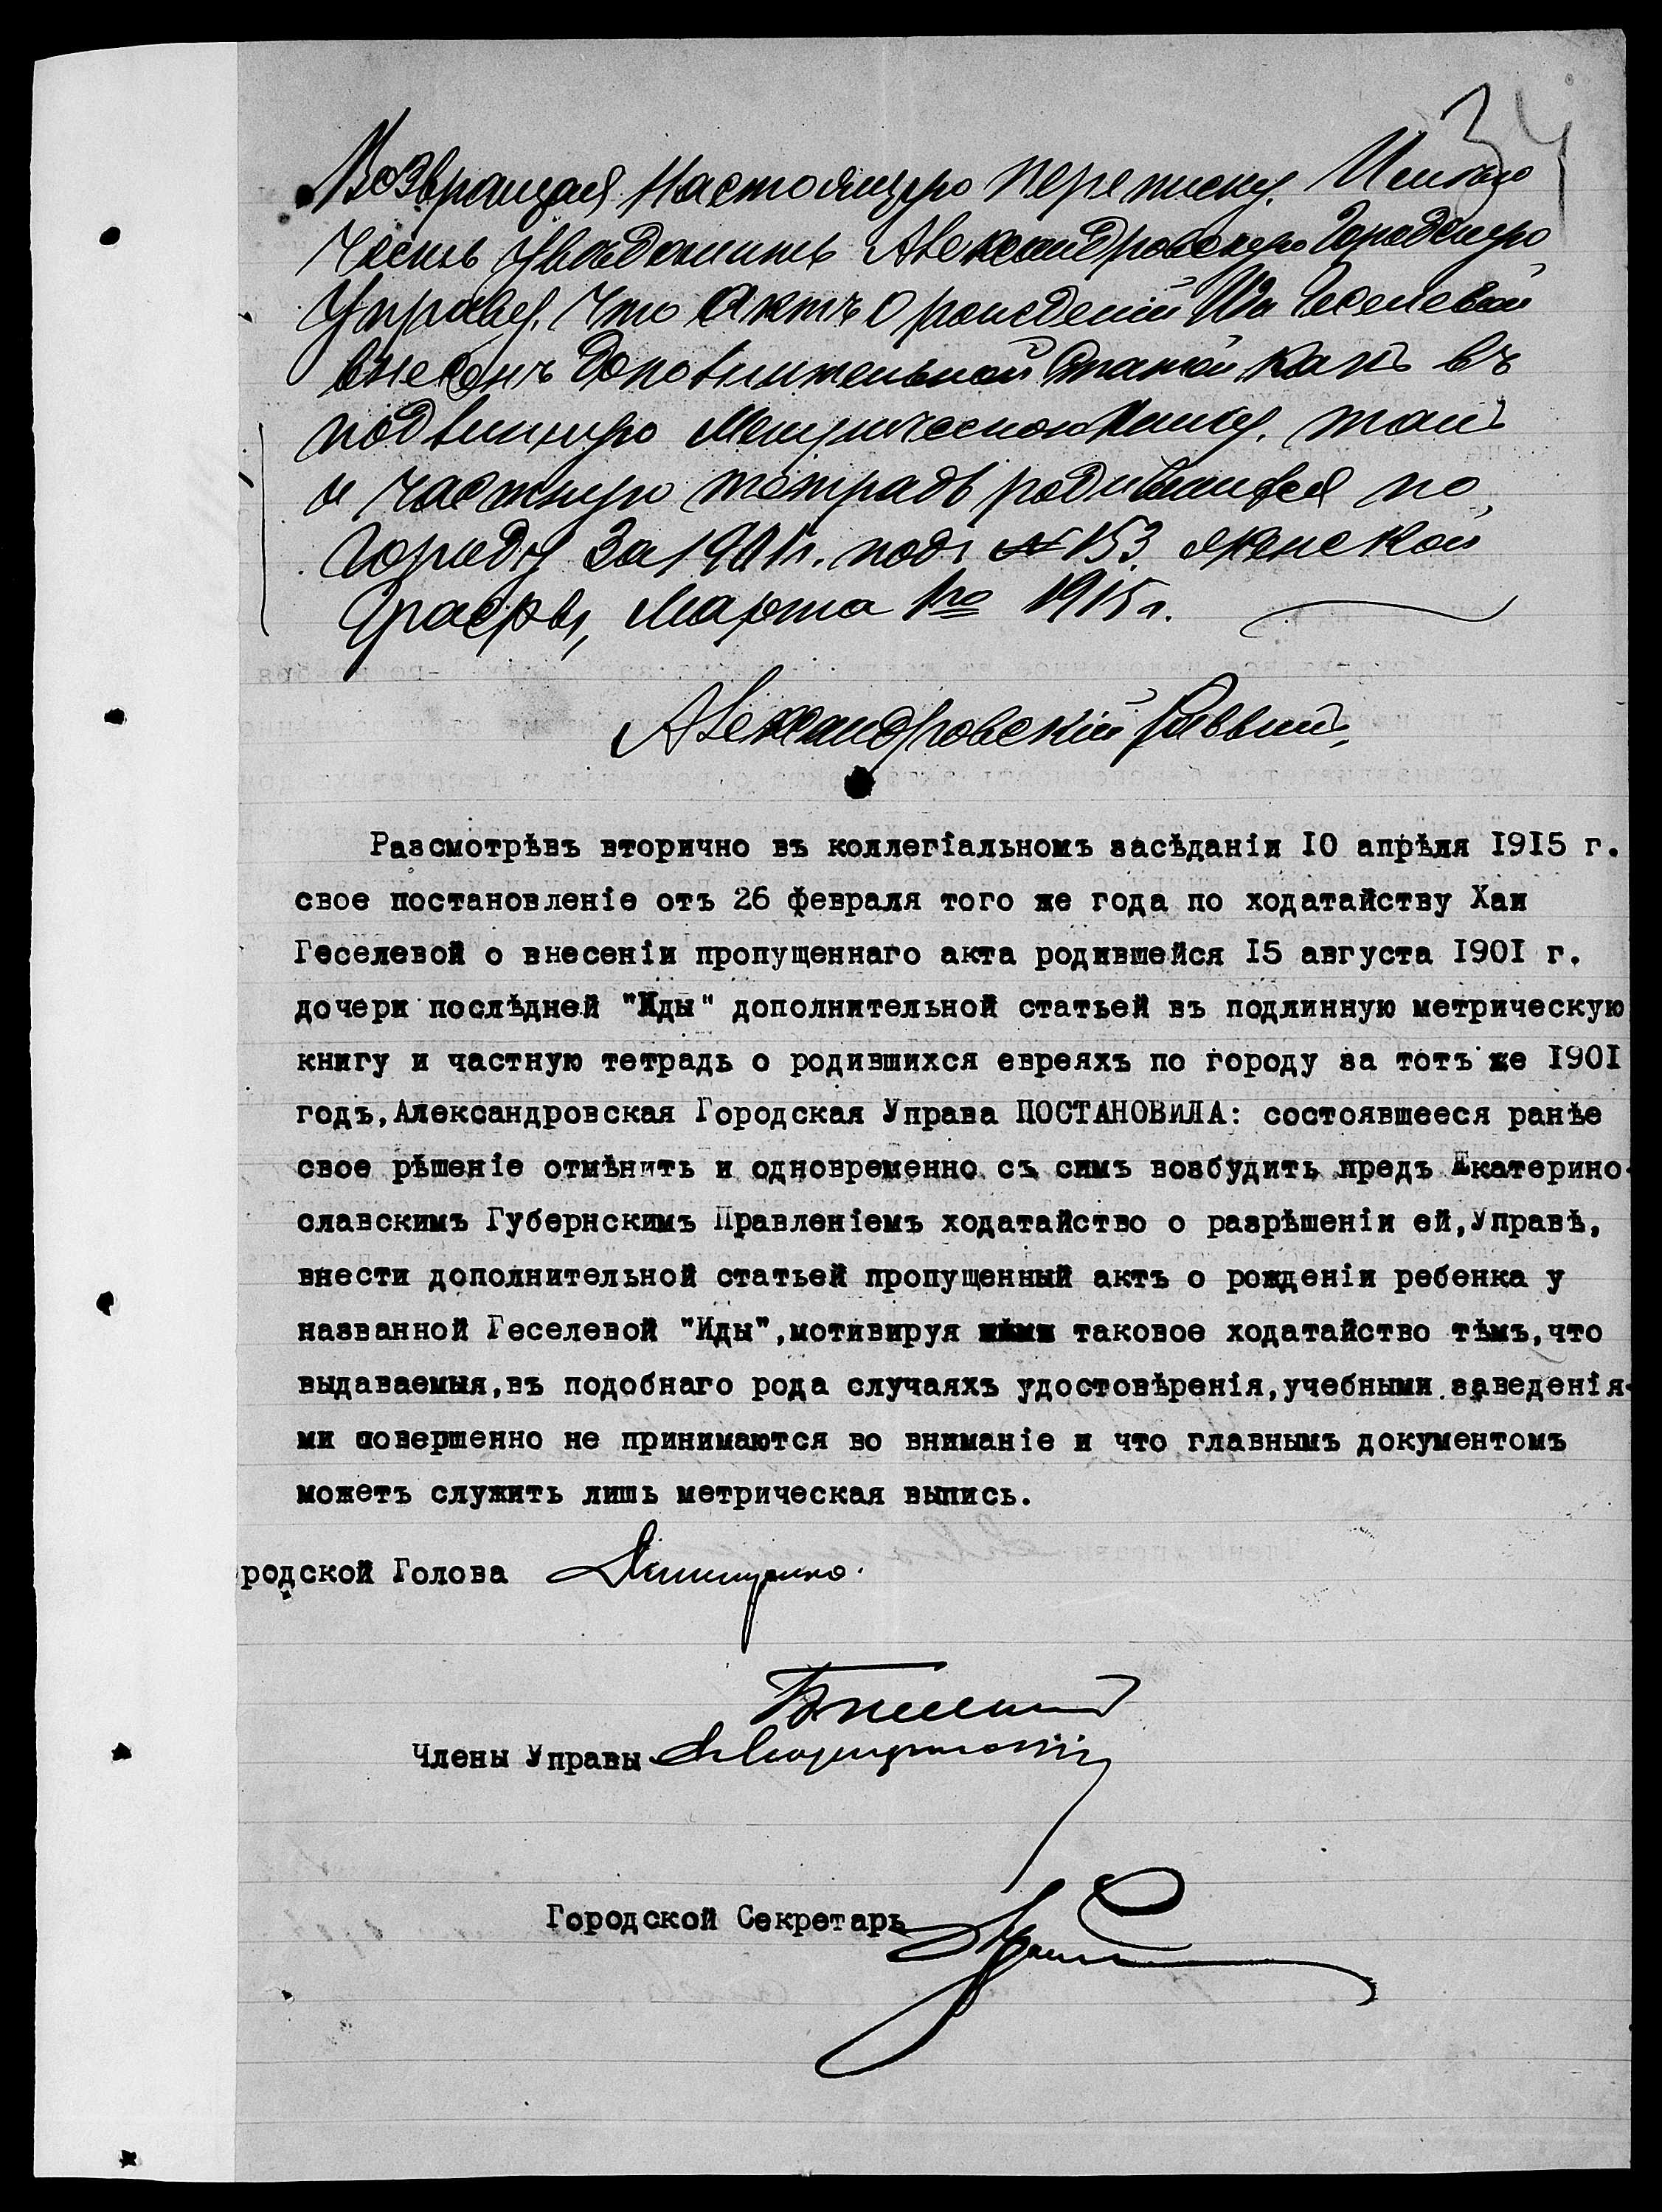 34
Возвращая настоящую переписку. Имѣю
Честь Увѣдомить Александровскую Городскую
Управу, Что Актъ о рожденіи Иды Геселевой
внесенъ дополнительной Статьей какъ въ
подлинную Метрическою Книгу, такъ
и частную тетрадь родившихся по
Городу За 1901 г. подъ № 153. женской
Графы, Марта 1го 1915 г.
Александровскій Раввинъ,
Разсмотрѣвъ вторично въ коллегіальномъ засѣданіи I0 апрѣля I9I5 г.
свое постановленіе отъ 26 февраля того же года по ходатайству Хаи
Геселевой о внесеніи пропущеннаго акта родившейся I5 августа I90I г.
дочери послѣдней "Иды" дополнительной статьей въ подлинную метрическую
книгу и частную тетрадь о родившихся евреяхъ по городу за тотъ же I90I
годъ,Александровская Городская Управа ПОСТАНОВИЛА: состоявшееся ранѣе
свое рѣшеніе отмѣнить и одновременно съ симъ возбудить предъ Екатерино-
славскимъ Губернскимъ Правленіемъ ходатайство о разрѣшеніи ей,Управѣ,
внести дополнительной статьей пропущенный актъ о рожденіи ребенка у
названной Геселевой "Иды",мотивируя таковое ходатайство тѣмъ,что
выдаваемыя,въ подобнаго рода случаяхъ удостовѣренія,учебными заведенія-
ми совершенно не принимаются во вниманіе и что главнымъ документомъ
можетъ служить лишь метрическая выпись.
родской Голова
Члены Управы
Городской Секретарь